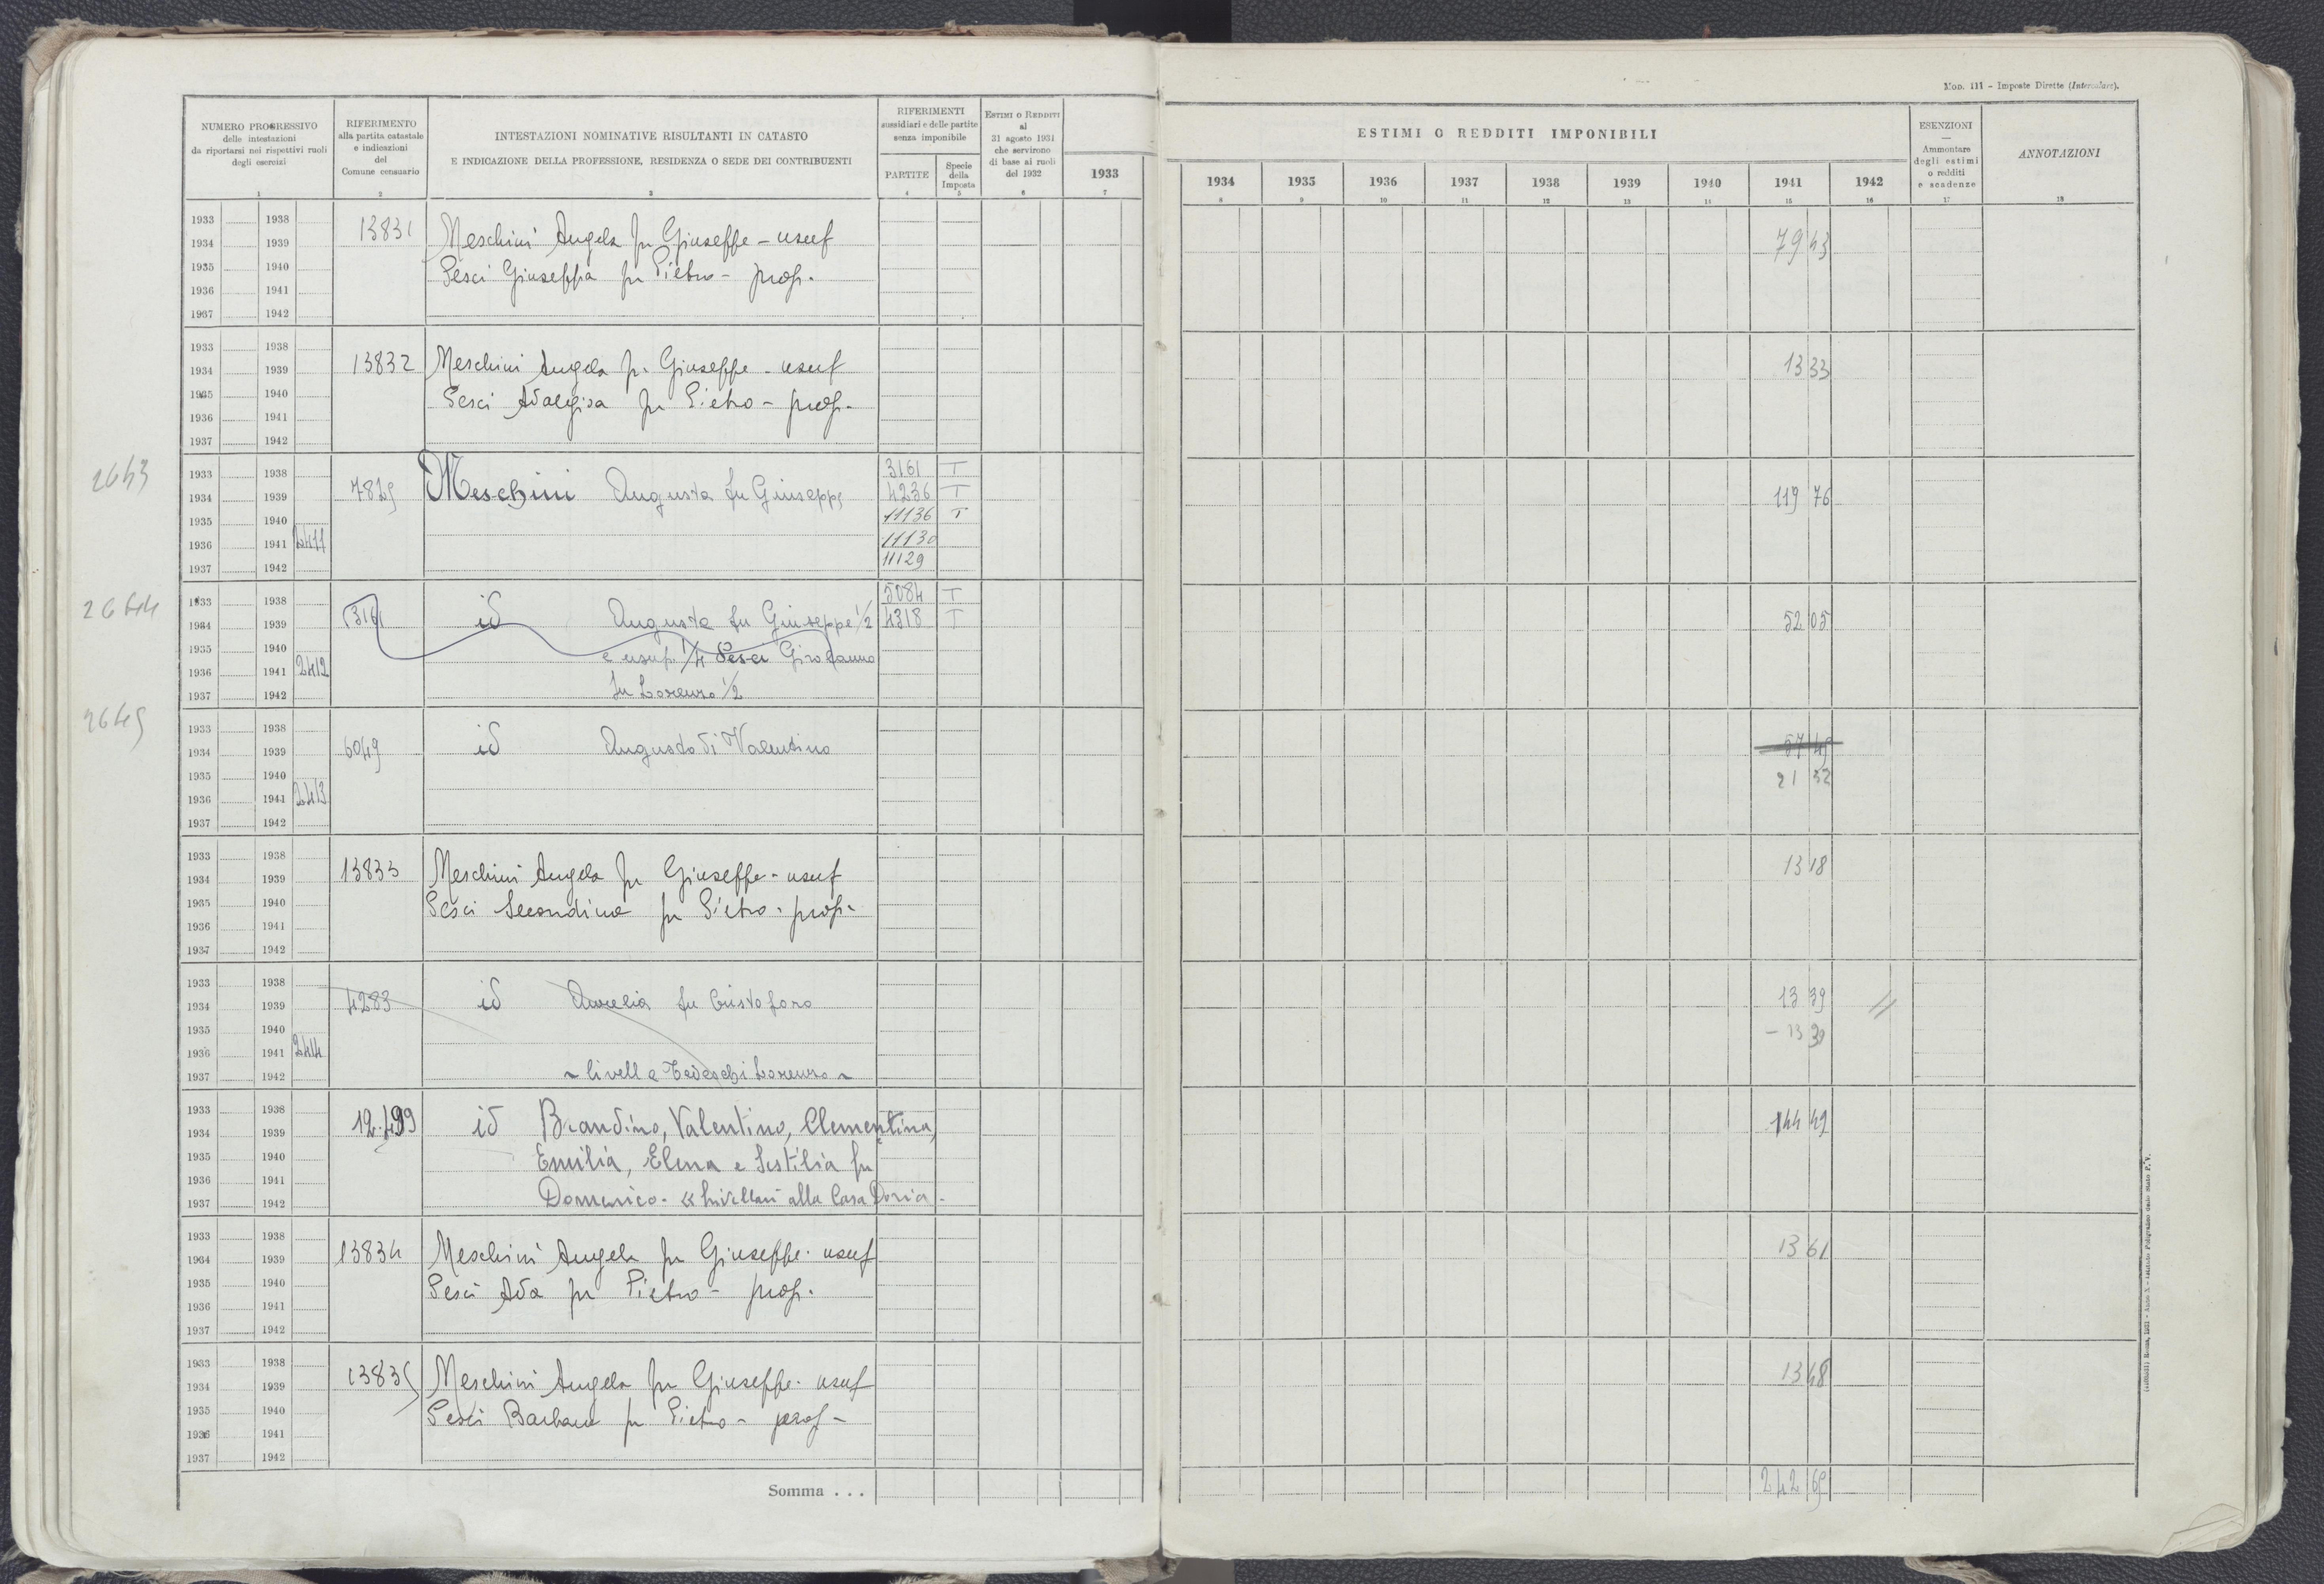 Mod. 111 - Imposte Dirette (Intercalare).
NUMERO PROGRESSIVO
delle intestazioni
da riportarsi nei rispettivi ruoli
degli esercizi
1
RIFERIMENTO
alla partita catastale
e indicazioni
del
Comune censuario
2
INTESTAZIONI NOMINATIVE RISULTANTI IN CATASTO
E INDICAZIONE DELLA PROFESSIONE, RESIDENZA O SEDE DEI CONTRIBUENTI
3
RIFERIMENTI
sussidiari e delle partite
senza imponibile
PARTITE
4
Specie
della
Imposta
5
ESTIMI O REDDITI
al
31 agosto 1931
che servirono
di base ai ruoli
del 1932
6
1933
7
ESTIMI O REDDITI IMPONIBILI
1934 1935 1936 1937 1938 1939 1940 1941 1942
8 9 10 11 12 13 14 15 16
ESENZIONI
Ammontare
degli estimi
o redditi
e scadenze
17
ANNOTAZIONI
18
1933 1938
1934 1939
1935 1940
1936 1941
1937 1942
13831
Meschini Angela fu Giuseppe - usuf
Pesci Giuseppa fu Pietro - prop.
79 43
1933 1938
1934 1939
1935 1940
1936 1941
1937 1942
13832
Meschini Angela fu Giuseppe - usuf
Pesci Adalgisa fu Pietro - prop.
13 33
2643
1933 1938
1934 1939
1935 1940
1936 1941 2411
1937 1942
7829
Meschini Augusta fu Giuseppe
3161 T
4236 T
11136 T
11130
11129
119 76
2644
1933 1938
1934 1939
1935 1940
1936 1941 2412
1937 1942
3161
id Augusta fu Giuseppe 1/2
e usuf. 1/4 Pesci Girolamo
fu Lorenzo 1/2
5084 T
4318 T
52 05
2645
1933 1938
1934 1939
1935 1940
1936 1941 2413
1937 1942
6049
id Augusto di Valentino
57 49
21 52
1933 1938
1934 1939
1935 1940
1936 1941
1937 1942
13833
Meschini Angela fu Giuseppe - usuf
Pesci Secondina fu Pietro - prop.
13 18
1933 1938
1934 1939
1935 1940
1936 1941 2414
1937 1942
4283
id Aurelia fu Cristoforo
~ livell a Tedeschi Lorenzo ~
13 39 //
- 13 39
1933 1938
1934 1939
1935 1940
1936 1941
1937 1942
12.499
id Brandino, Valentino, Clementina,
Emilia, Elena e Sestilia fu
Domenico - «livellari alla Casa Doria -
144 49
1933 1938
1934 1939
1935 1940
1936 1941
1937 1942
13834
Meschini Angela fu Giuseppe - usuf
Pesci Ada fu Pietro - prop.
13 61
1933 1938
1934 1939
1935 1940
1936 1941
1937 1942
13835
Meschini Angela fu Giuseppe - usuf
Pesci Barbara fu Pietro - prop -
13 48
Somma . . .
242 69